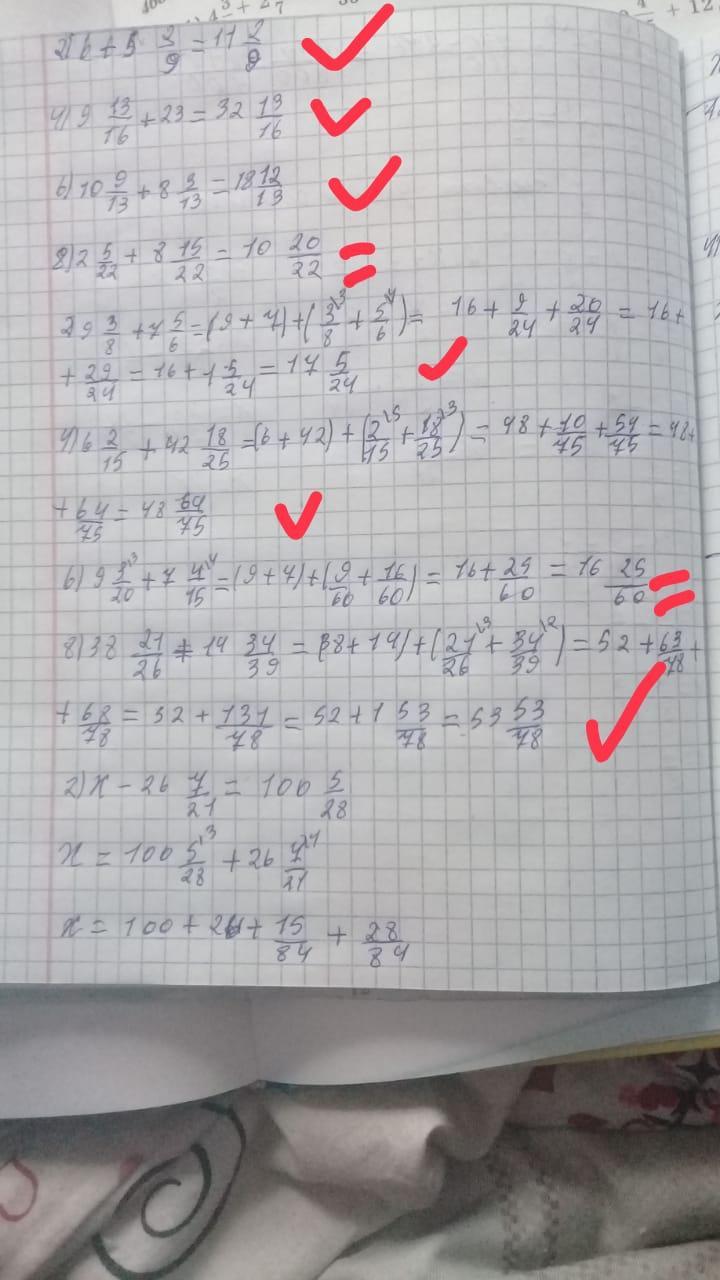 2) 6 + 5 2/9 = 11 2/9
4) 9 13/16 + 23 = 32 13/16
6) 10 9/13 + 8 3/13 = 18 12/13
8) 2 5/22 + 8 15/22 = 10 20/22 =
2 9 3/8 + 7 5/6 = (9 + 7) + (3/8 + 5/6) = 16 + 9/24 + 20/24 = 16 +
+ 29/24 = 16 + 1 5/24 = 17 5/24
4) 6 2/15 + 42 18/25 = (6 + 42) + (2/15 + 18/25) = 48 + 10/75 + 54/75 = 48 +
+ 64/75 = 48 64/75
6) 9 3/20 + 7 4/15 = (9 + 7) + (9/60 + 16/60) = 16 + 25/60 = 16 25/60 =
8) 38 21/26 + 14 34/39 = (38 + 14) + (21/26 + 34/39) = 52 + 63/78 +
+ 68/78 = 52 + 131/78 = 52 + 1 53/78 = 53 53/78
2) x - 26 7/21 = 100 5/28
x = 100 5/28 + 26 7/21
x = 100 + 26 + 15/84 + 28/84